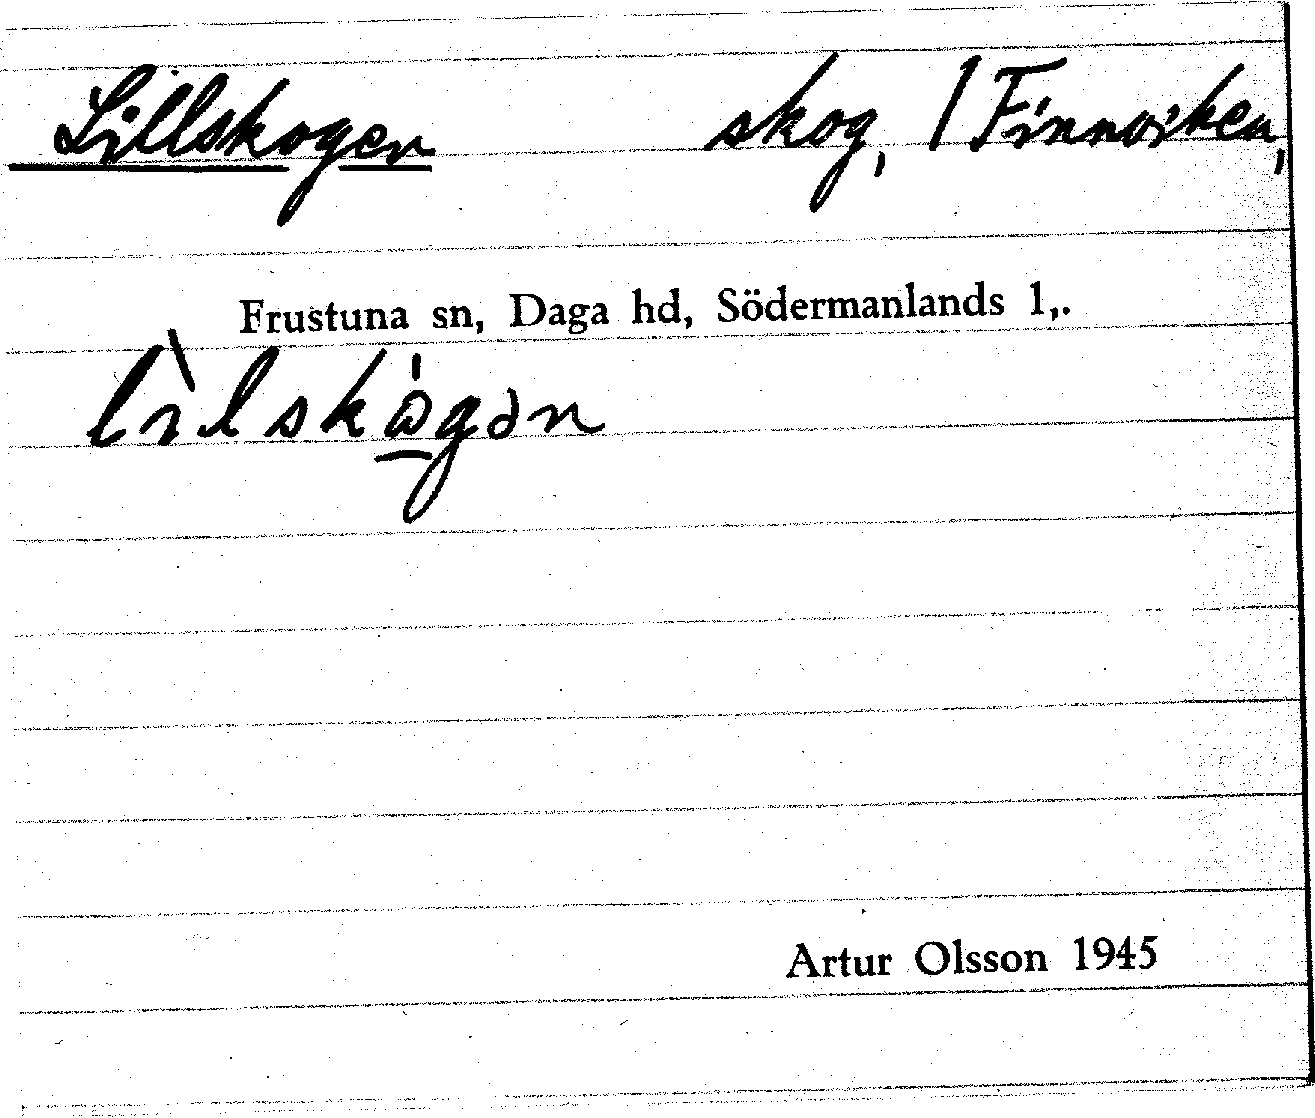 Lillskogen skog, / Finnviken,
Frustuna sn, Daga hd, Södermanlands l,.
lìlskògən
Artur Olsson 1945